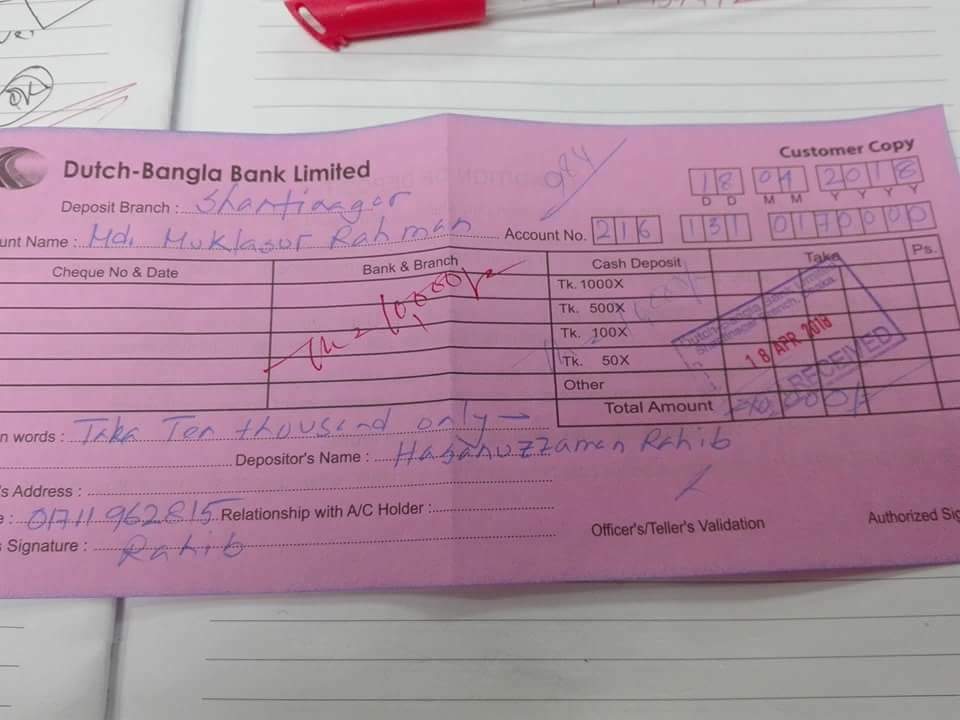 OK
Customer Copy
Dutch-Bangla Bank Limited
984
18 04 2018
D D M M Y Y Y Y
Deposit Branch : Shantinagar
unt Name : Md. Muklasur Rahman Account No. 216 131 0170000
Cheque No & Date Bank & Branch Cash Deposit Taka Ps.
Tk. 1000X
Tk. 500X
Tk. 100X
Tk. 50X
Other
Total Amount =10,000/=
Tk = 10,000/=
Dutch-Bangla Bank Limited
18 APR 2018
RECEIVED
n words : Taka Ten thousand only
Depositor's Name : Hasanuzzaman Rahib
's Address :
e : 01711962815 Relationship with A/C Holder :
s Signature : Rahib
Officer's/Teller's Validation Authorized Sig